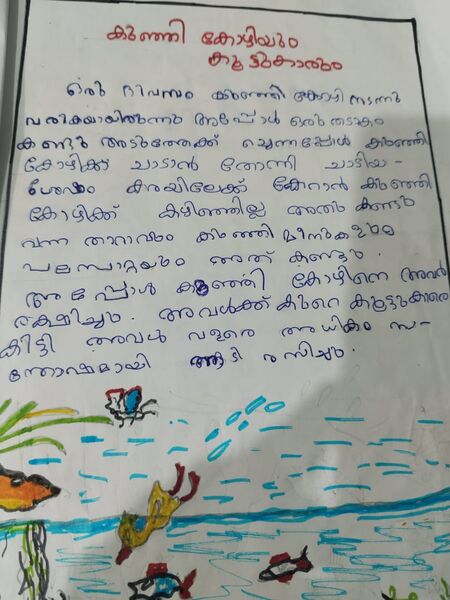 കുഞ്ഞി കോഴിയും
കൂട്ടുകാരും
ഒരു ദിവസം കുഞ്ഞി കോഴി നടന്നു
വരുകയായിരുന്നു അപ്പോൾ ഒരു തടാകം
കണ്ടു അടുത്തേക്ക് ചെന്നപ്പോൾ കുഞ്ഞി
കോഴിക്ക് ചാടാൻ തോന്നി ചാടിയ-
ശേഷം കരയിലേക്ക് കേറാൻ കുഞ്ഞി
കോഴിക്ക് കഴിഞ്ഞില്ല അതു കണ്ടു
വന്ന താറാവും കുഞ്ഞി മീനുകളും
അത് കണ്ടു.
അപ്പോൾ കുഞ്ഞി കോഴിനെ അവർ
രക്ഷിച്ചു. അവൾക്ക് കുറെ കൂട്ടുകാരെ
കിട്ടി അവൾ വളരെ അധികം സ-
ന്തോഷമായി ആടി രസിച്ചു.